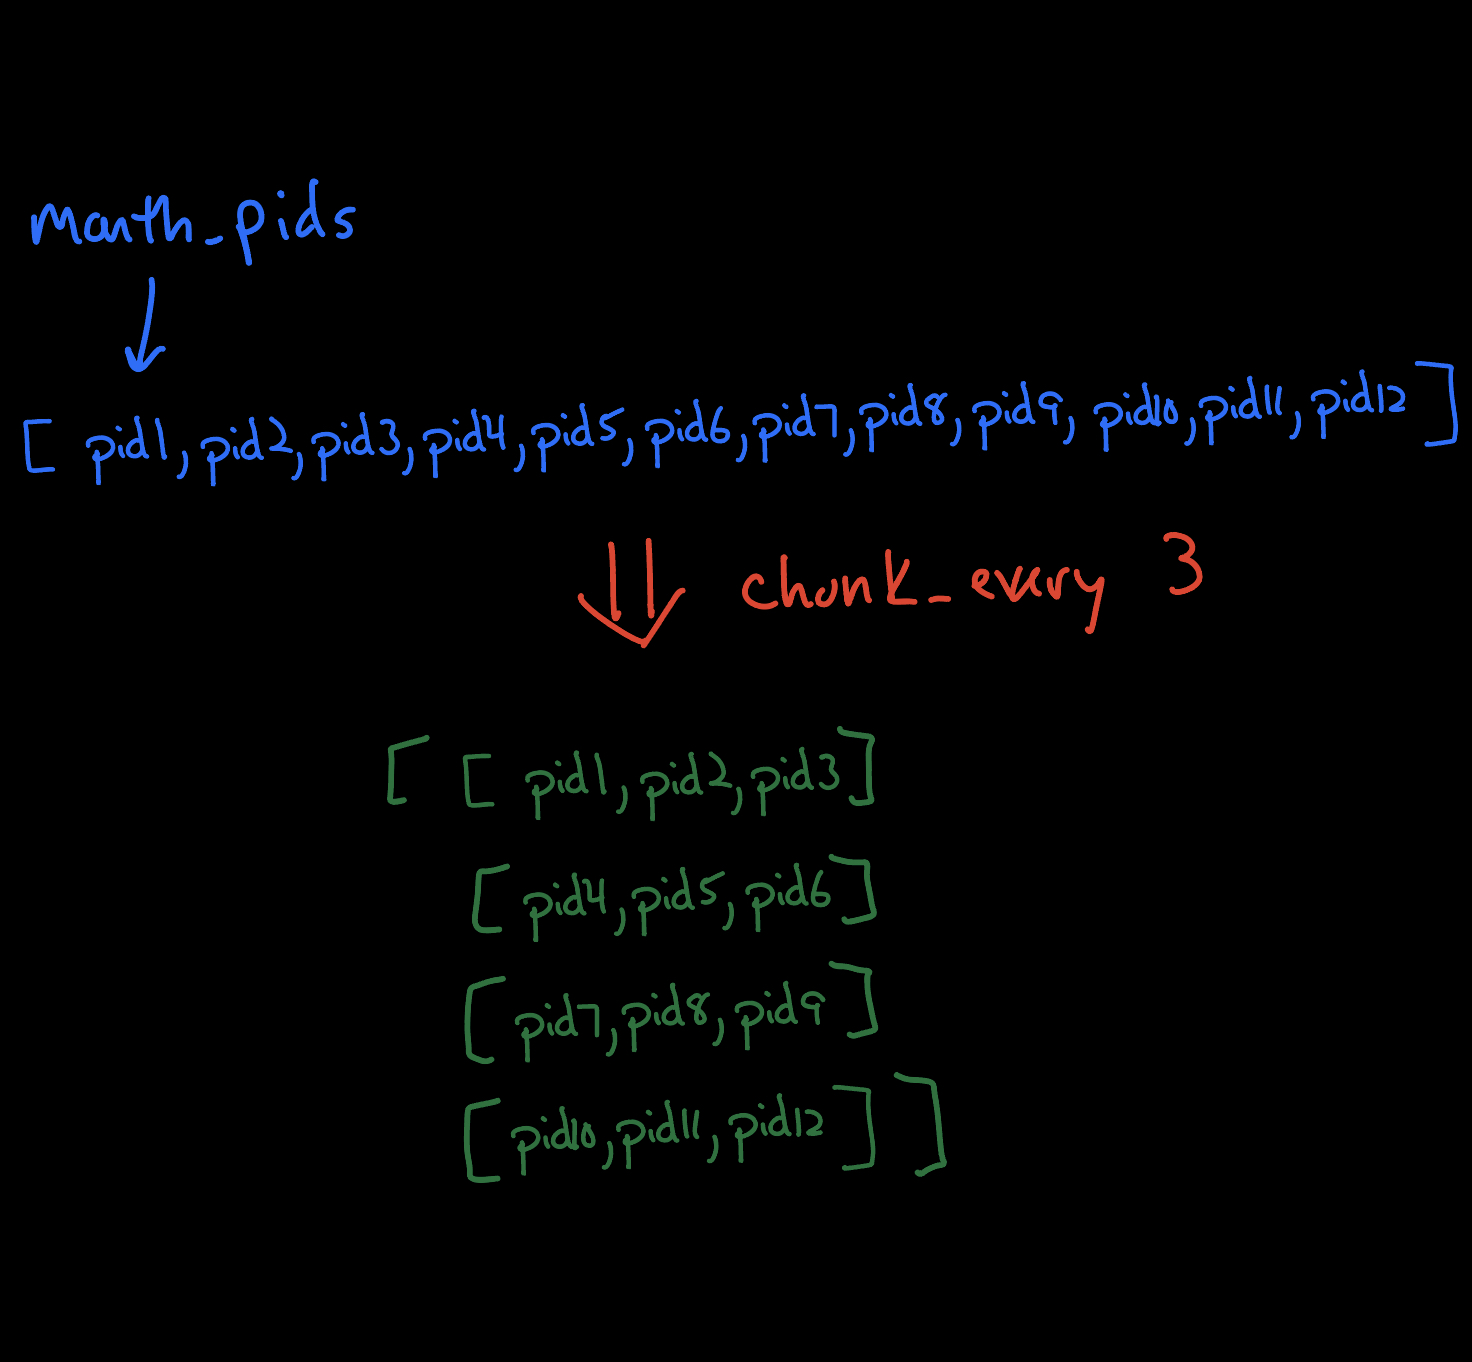 month_pids
[ pid1, pid2, pid3, pid4, pid5, pid6, pid7, pid8, pid9, pid10, pid11, pid12 ]
chunk_every 3
[ [ pid1, pid2, pid3 ]
[ pid4, pid5, pid6 ]
[ pid7, pid8, pid9 ]
[ pid10, pid11, pid12 ] ]